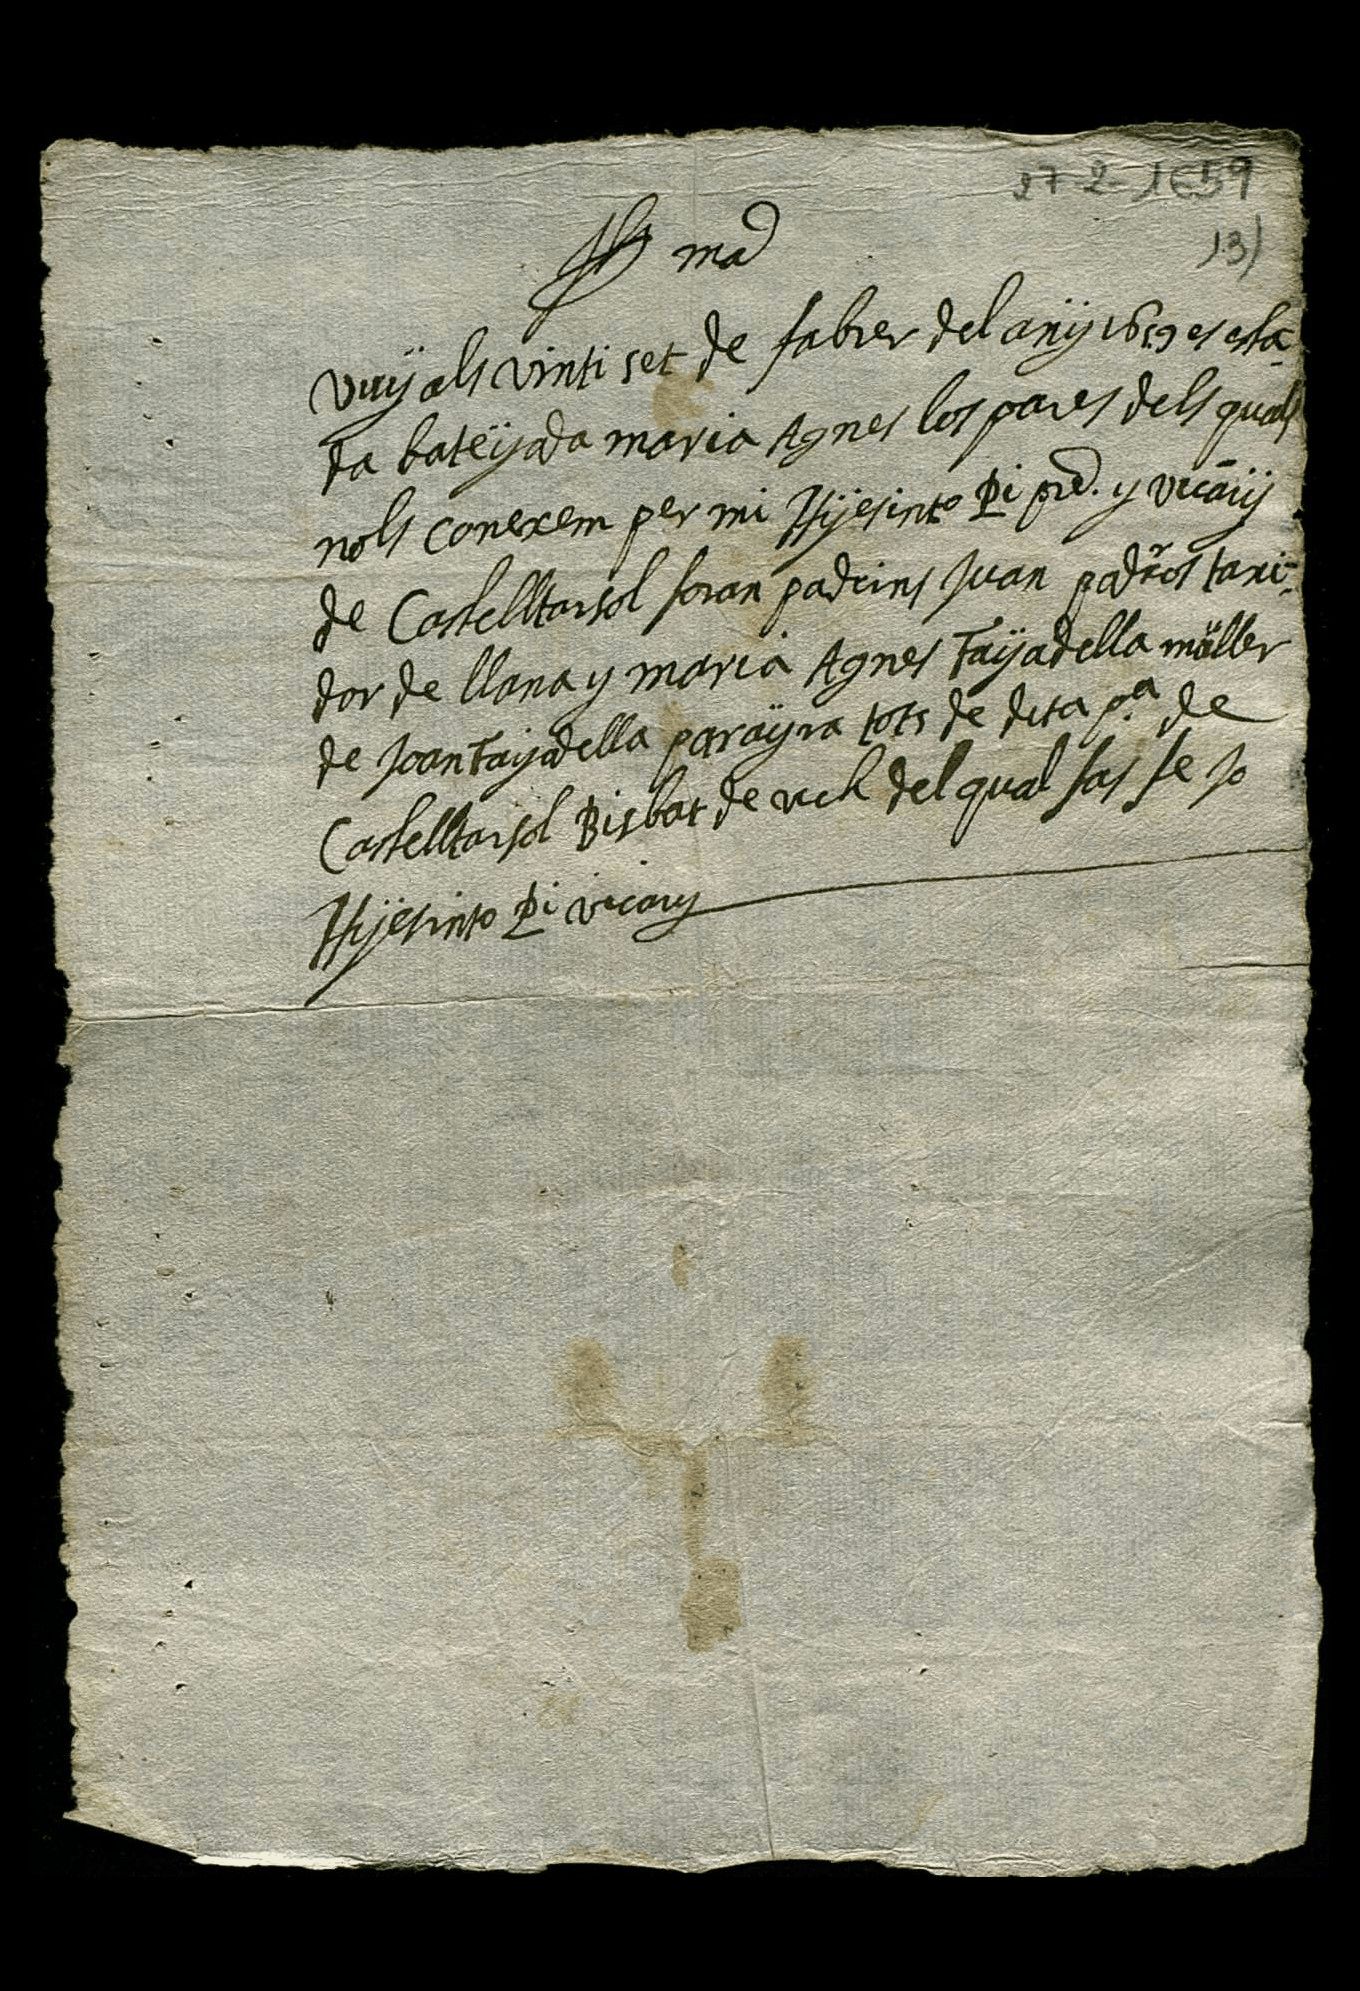 27-2-1659
13)
Jhs mª
vuy als vinti set de fabrer del any 1659 es esta-
da bateyada maria Agnes los pares dels quals
nols conexem per mi Hyjesinto Pi pre. y vicary
de Castelltarsol foran padrins Juan padros tani-
dor de llana y maria Agnes Tayadella muller
de Joan Tayadella parayra tots de dita pª. de
Castelltarsol Bisbat de vich del qual fas fe Jo
Hyjesinto Pi vicary